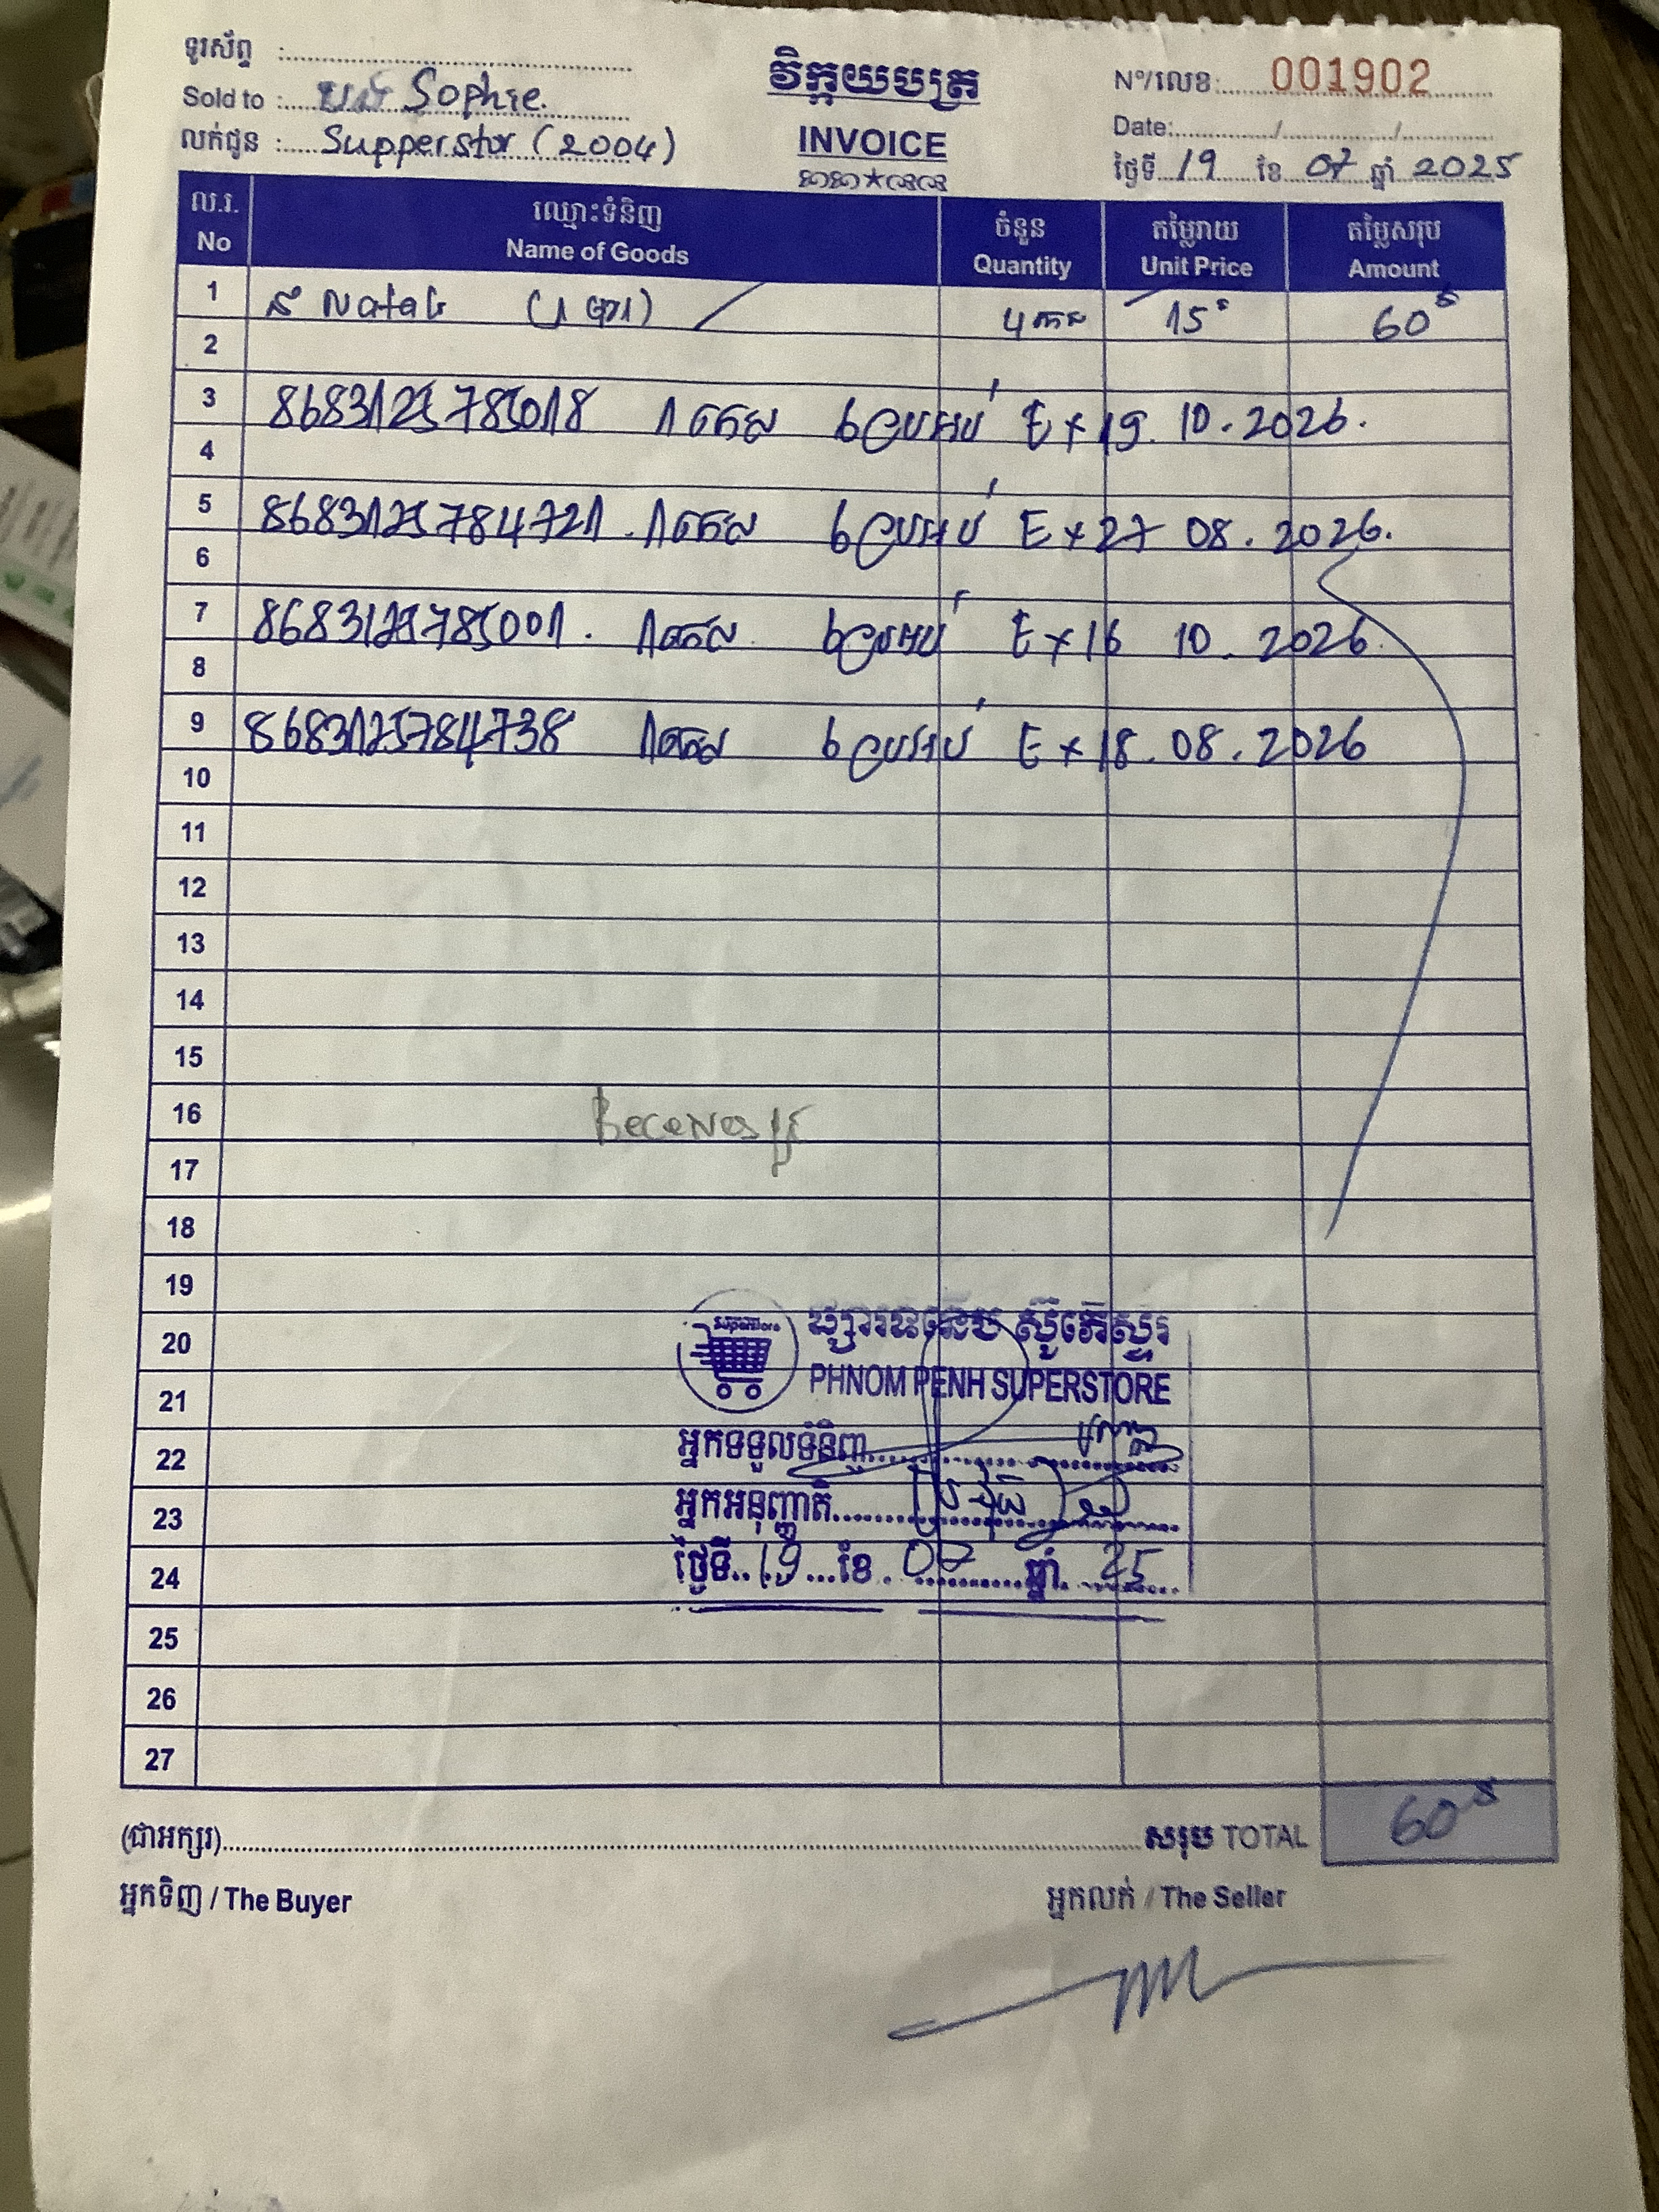 ទូរស័ព្ទ :
Sold to : បង Sophie.
លក់ជូន : Supperstor (2004)
វិក្កយបត្រ
INVOICE
Nº/លេខ: 001902
Date: / /
ថ្ងៃទី 19 ខែ 07 ឆ្នាំ 2025
ល.រ. ឈ្មោះទំនិញ ចំនួន តម្លៃរាយ តម្លៃសរុប
No Name of Goods Quantity Unit Price Amount
1 4កេស 15$ 60$
2
3 8683125785018 1កេស 6ប្រអប់ Ex 19.10.2026.
4
5 8683125784721. 1កេស 6ប្រអប់ Ex 27 08.2026.
6
7 8683125785001. 1កេស 6ប្រអប់ Ex 16 10.2026.
8
9 8683125784738 1កេស 6ប្រអប់ Ex 18.08.2026
10
11
12
13
14
15
16
17
18
19
20
21
22
23
24
25
26
27
superstore
PHNOM PENH SUPERSTORE
អ្នកទទួលទំនិញ
អ្នកអនុញ្ញាតិ
ថ្ងៃទី 19 ខែ 07 ឆ្នាំ 25
(ជាអក្សរ) សរុប TOTAL 60$
អ្នកទិញ / The Buyer អ្នកលក់ / The Seller